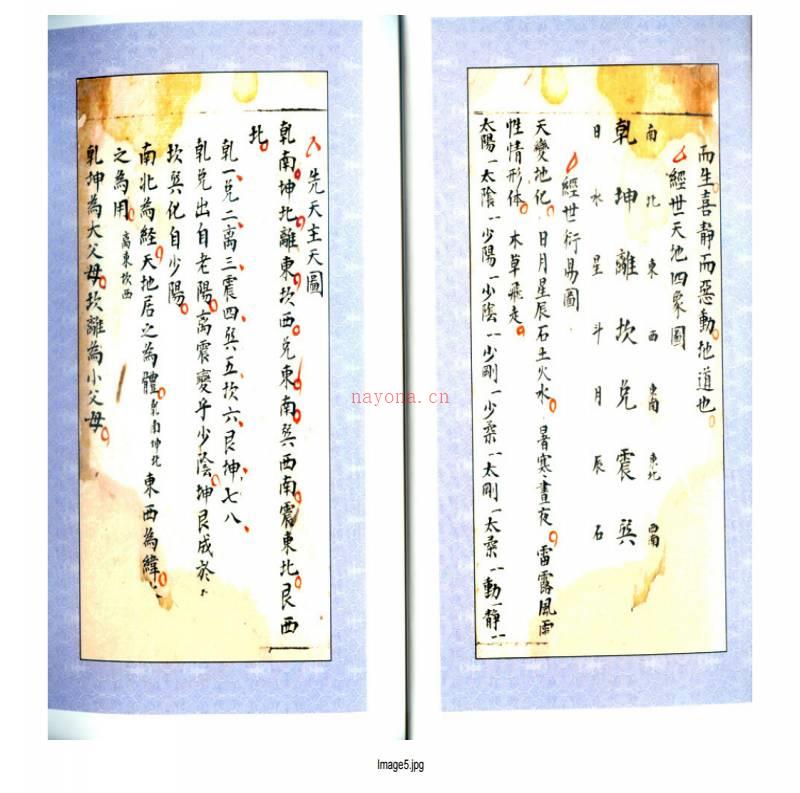 而生喜靜而惡動地道也
經世天地四象圖
南北東西東南東北西南
乾坤離坎兌震巽
日水星斗月辰石
經世衍昜圖
天變地化日月星辰石土火水暑寒晝夜雷露風雨
性情形体木草飛走
太陽一太陰一少陽一少陰一少剛一少柔一太剛一太柔一動一靜一
先天主天圖
乾南坤北離東坎西兌東南巽西南震東北艮西
北
乾一兌二离三震四巽五坎六艮坤七八
乾兌出自老陽离震變乎少陰坤艮成於
坎巽化自少陽
南北為經天地居之為體乾南坤北東西為緯
之為用离東坎西
乾坤為大父母坎離為小父母
nayona.cn
Image5.jpg